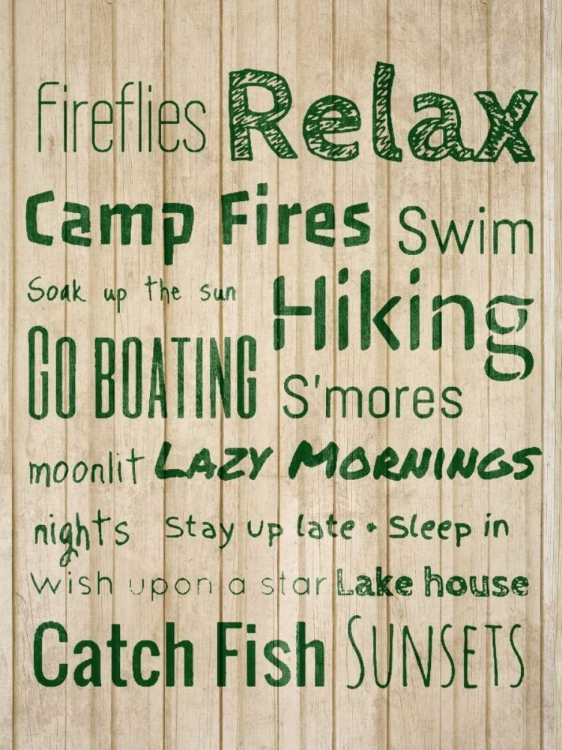 fireflies Relax
Camp Fires Swim
Soak up the sun Hiking
GO BOATING S'mores
moonlit LAZY MORNINGS
nights Stay up late • Sleep in
Wish upon a star Lake house
Catch Fish SUNSETS